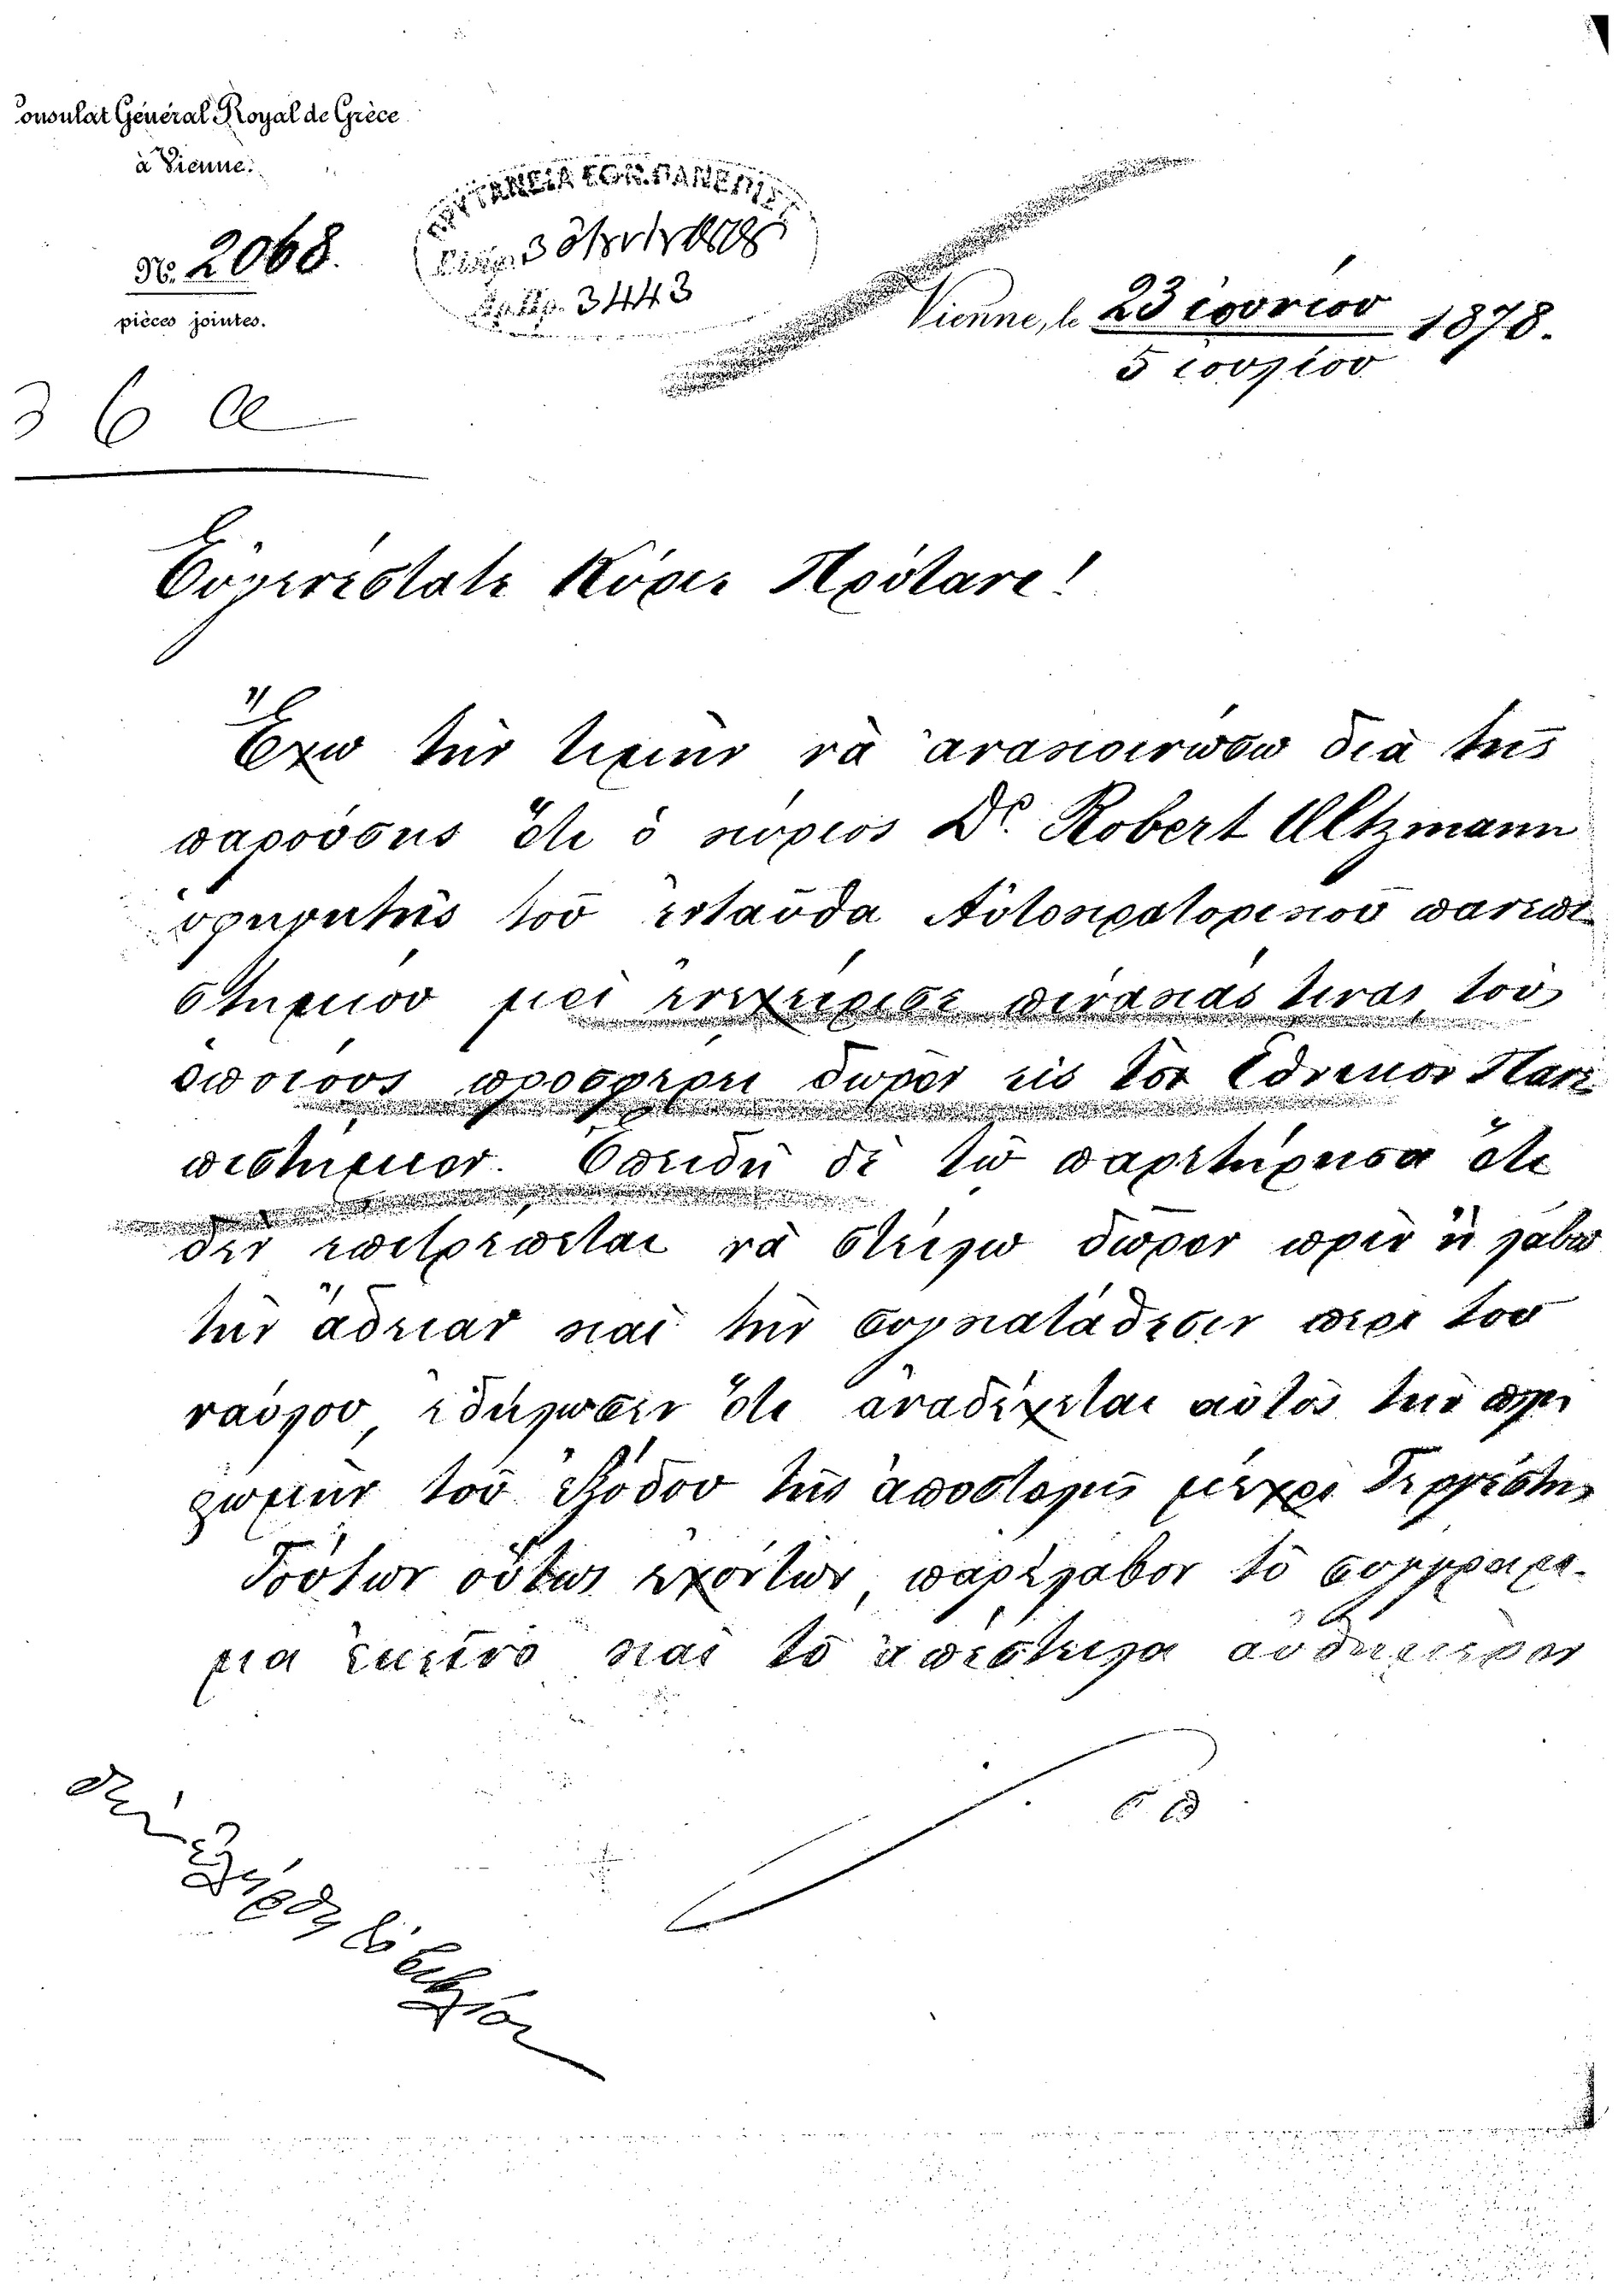 Consulat Général Royal de Grèce
à Vienne.
No. 2068.
pièces jointes.
ΠΡΥΤΑΝΕΙΑ ΕΘΝ. ΠΑΝΕΠΙΣΤ
3443
Vienne, le 23 ἰουνίου 1878.
5 ἰουλίου
36 α
Εὐγενέστατε Κύριε Πρύτανε!
Ἔχω τὴν τιμὴν νὰ ἀνακοινώσω διὰ τῆς
παρούσης ὅτι ὁ κύριος Dr. Robert Altzmann
ὑφηγητὴς τοῦ ἐνταῦθα Αὐτοκρατορικοῦ πανεπι
στημίου μοὶ ἐνεχείρισε πίνακάς τινας, τοὺς
ὁποίους προσφέρει δῶρον εἰς τὸν Ἐθνικὸν Πανε
πιστήμιον. Ἐπειδὴ δὲ τῷ παρετήρησα ὅτι
δὲν ἐπιτρέπεται νὰ στείλω δῶρον πρὶν ἢ λάβω
τὴν ἄδειαν καὶ τὴν συγκατάθεσιν περὶ τοῦ
ναύλου, ἐδήλωσεν ὅτι ἀναδέχεται αὐτὸς τὴν πλη
ρωμὴν τοῦ ἐξόδου τῆς ἀποστολῆς μέχρι Τεργέστης
Τούτων οὕτως ἐχόντων, παρέλαβον τὸ συγγραμ-
μα ἐκεῖνο καὶ τὸ ἀπέστειλα αὐθημερὸν
δὲν ἐλήφθη τὸ βιβλίον